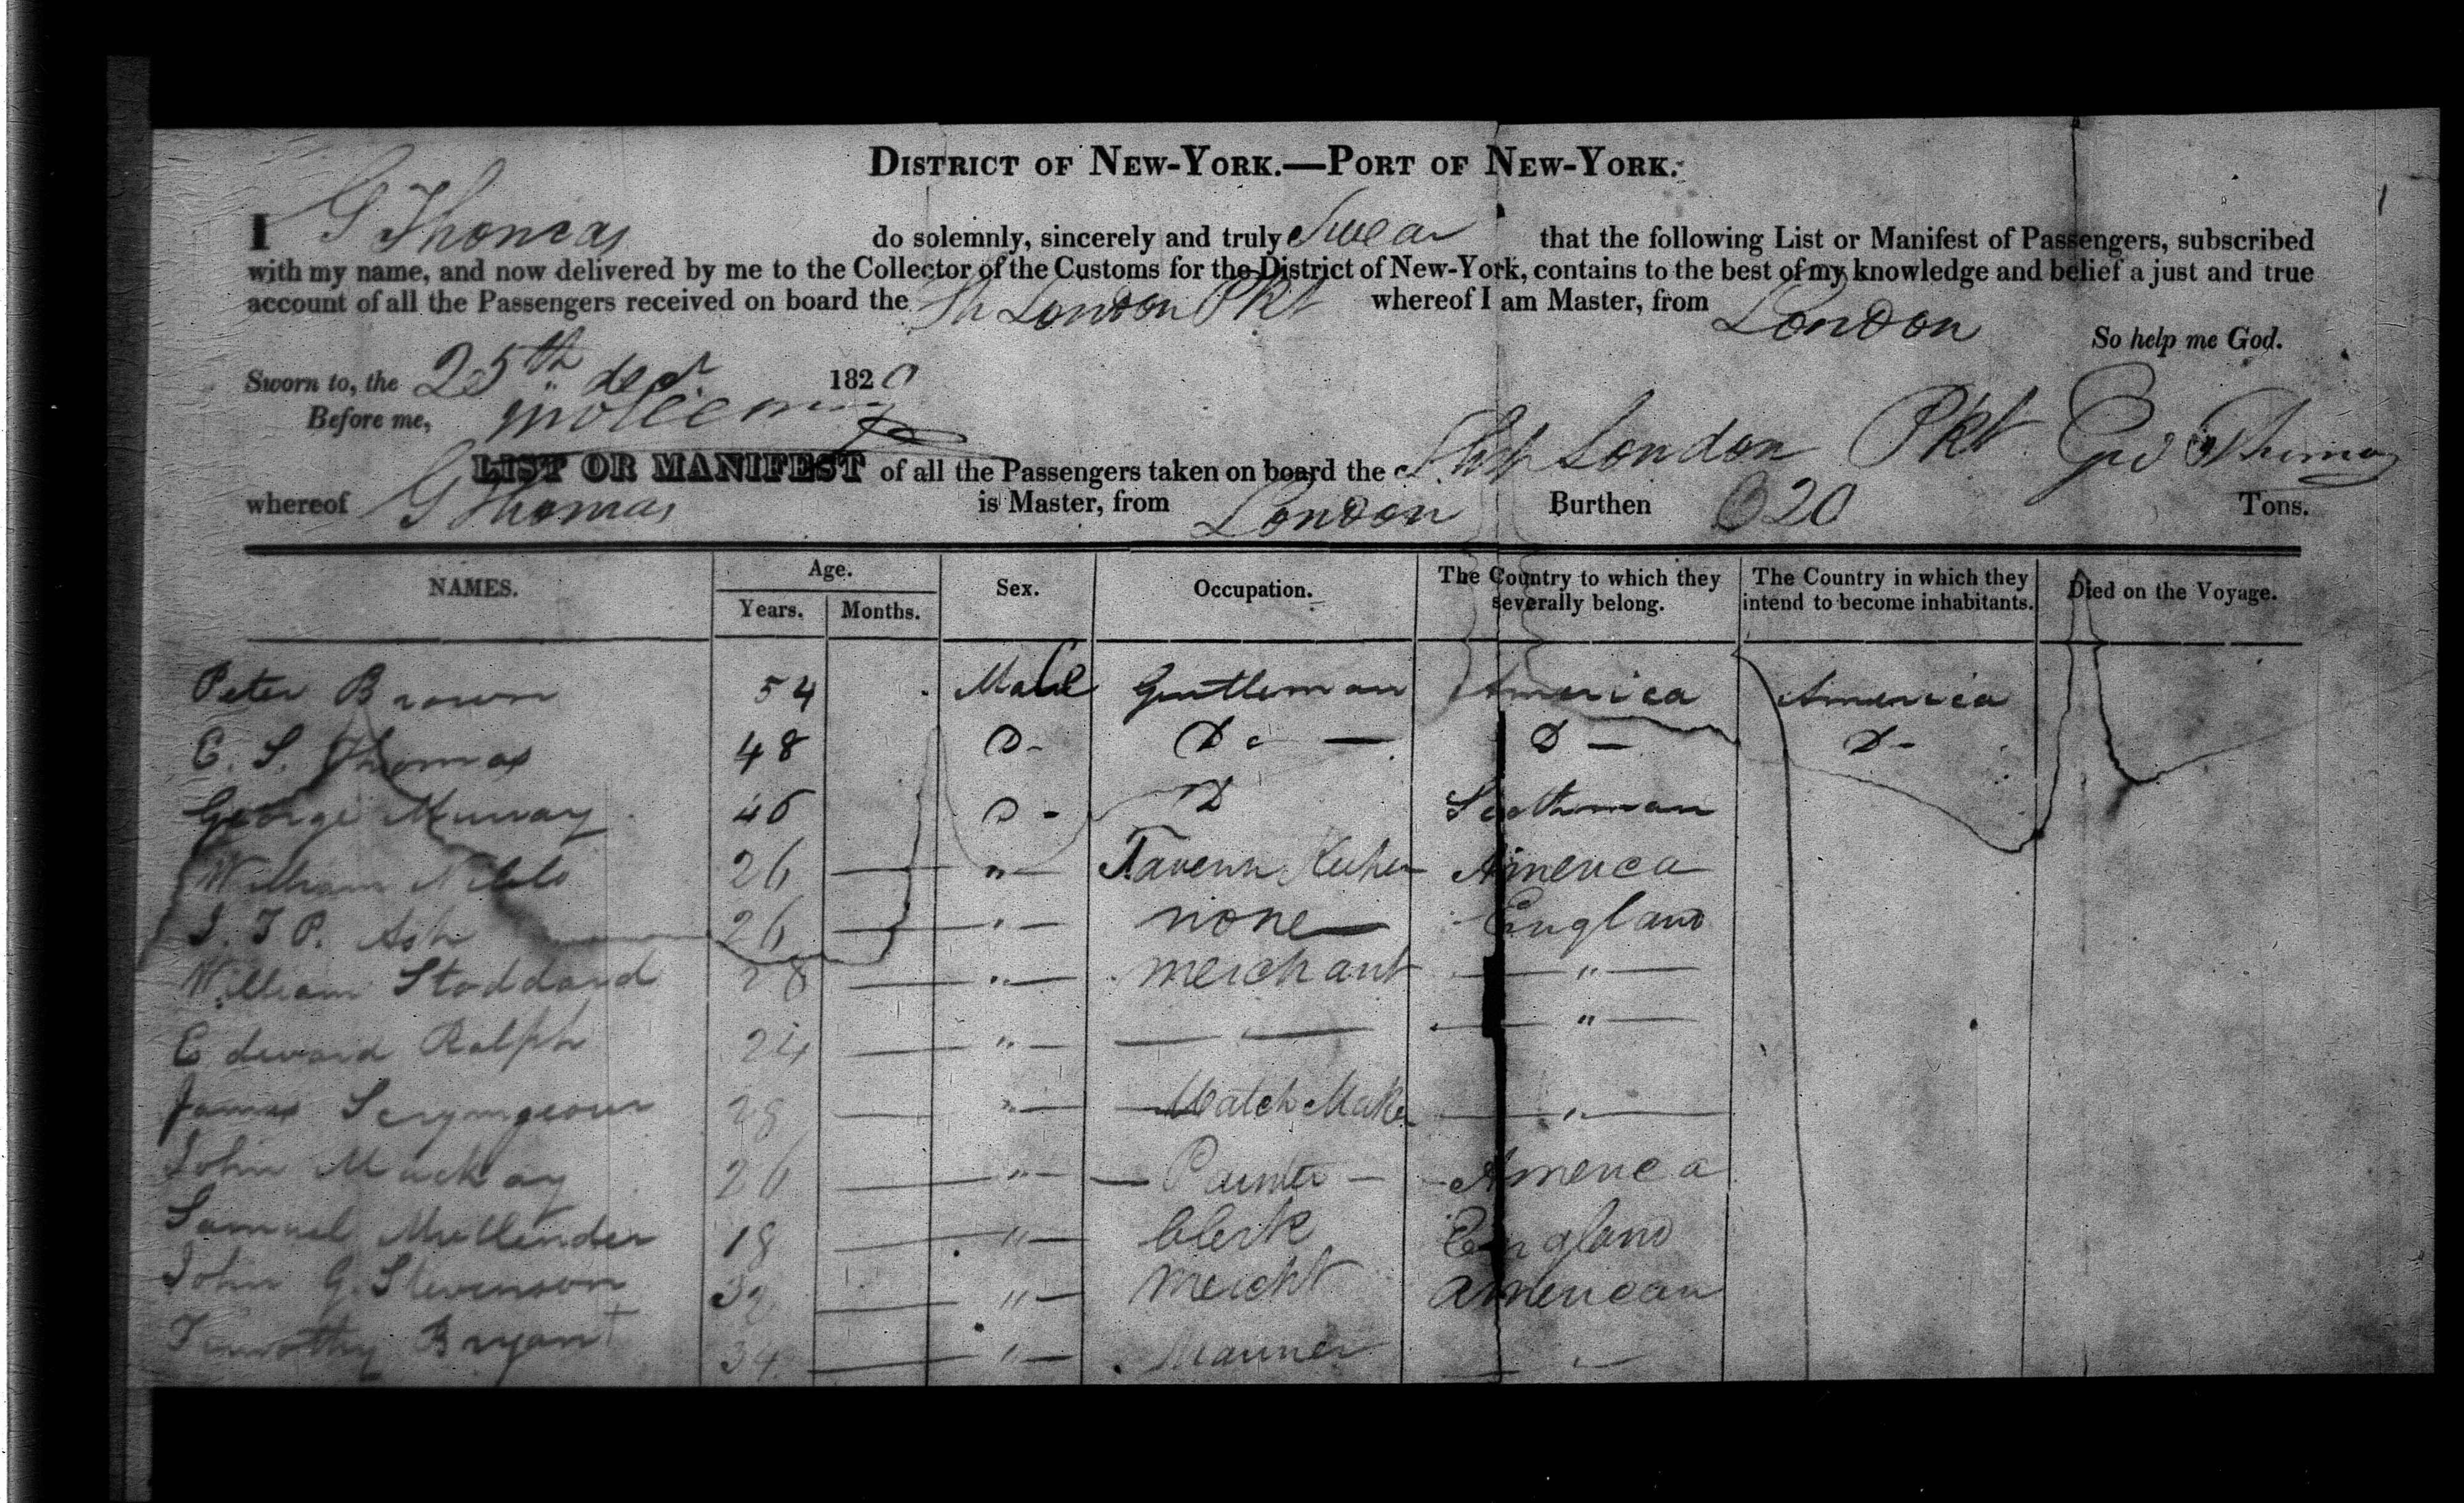 DISTRICT OF NEW-YORK.—PORT OF NEW-YORK.
I G Thomas do solemnly, sincerely and truly Swear that the following List or Manifest of Passengers, subscribed
with my name, and now delivered by me to the Collector of the Customs for the District of New-York, contains to the best of my knowledge and belief a just and true
account of all the Passengers received on board the Sh London Pkt whereof I am Master, from London
So help me God.
Sworn to, the 25th decr 1820
Before me,
Geo Thomas
LIST OR MANIFEST of all the Passengers taken on board the Ship London Pkt
whereof G Thomas is Master, from London Burthen 320 Tons.
NAMES. Age. Years. Months. Sex. Occupation. The Country to which they severally belong. The Country in which they intend to become inhabitants. Died on the Voyage.
Peter Brown 54 Male Gentleman America America
E. S. Thomas 48 D- Do — D — D-
George Murray 46 D- D Scothman
William Niblo 26 — " — Tavern Keeper America
I. T P. Ash 26 — " — none England
William Stoddard 28 — " — merchant — " —
Edward Ralph 24 — " — — — — " —
James Scrymgeour 28 — " — Watch Maker — " —
John Mackay 26 — " — Painter — America
Samuel Mullender 18 — " — Clerk England
John G. Stevenson 32 — " — Mercht American
Timothy Bryant 34 — " — Mariner — " —